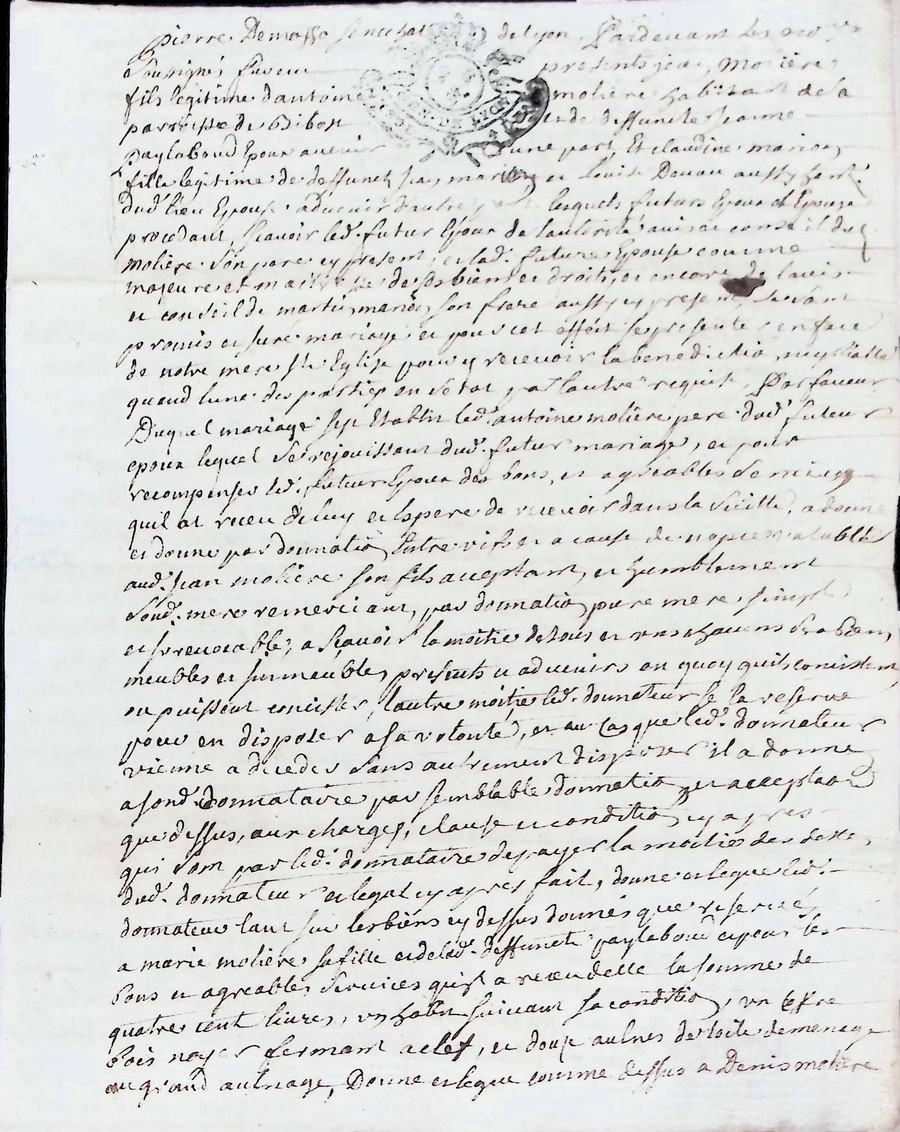 pierre Demasso senechal de Lyon, Pardevant les no.res
soussignés furent presents jean Moliere
fils legitime d'antoine moliere habitant de la
parroisse de Bibost et de deffuncte jeanne
Paylaboud Epoux avenir d'une part, Et claudine marion
fille legitime de deffunct jean marion et Louise Devau aussy habt.e
dud. lieu Epouse advenir d'autre part lesquels futurs Epoux et Epouse
procedant, scavoir led. futur Epoux de lautorité avis et conseil dud.
moliere son pere cy present, et lad. future Epouse comme
majeure et maitresse de ses biens et droits, et encore de lavis
et conseil de martin marion son frere aussy cy present, se sont
promis et juré mariage et pour cet effet se presenter en face
de notre mere Ste Eglise pour y recevoir la benediction nuptialle
quand lune des parties en sera par lautre requise, Par faveur
Duquel mariage sest Etably led. antoine moliere pere dud. futeur
epoux lequel se rejouissant dud. futur mariage, et pour
recompenser led. futur Epoux des bons, et agreables services
quil at receu de luy et Espere de recevoir dans la suitte, a donné
et donne par donnation Entre vifs et a cause de nopces valuble
aud. Jean moliere son fils acceptant, et humblement
sond. mere remerciant, par donnation pure mere simple
et irrevocable, a scavoir la moitié de tous et uns chacuns ses biens,
meubles et immeubles, presents et advenirs en quoy quils consistent,
ou puissent concister, lautre moitié led. donnateur se la reserve
pour en disposer a sa volonté, et au cas que led. donnateur
vienne a deceder sans autrement disposer il a donné
a sond. donnataire par semblable donnation et acceptation
que dessus, aux charges, clause et condition cy apres
qui sont par led. donnataire de payer la moitié des dettes,
dud. donnateur et legat cy apres fait, donne et legue led.
donnateur tant sur les biens cy dessus donnés que reservés
a marie moliere sa fille et de lad. deffuncte paylaboud et pour les
bons et agreables services quil a receu delle la somme de
quatre cent livres, un habit suivant sa condition, un coffre
bois noyer fermant a clef, et douze aulnes de toile de menage
au grand aulnage, Donne et legue comme dessus a Denis moliere